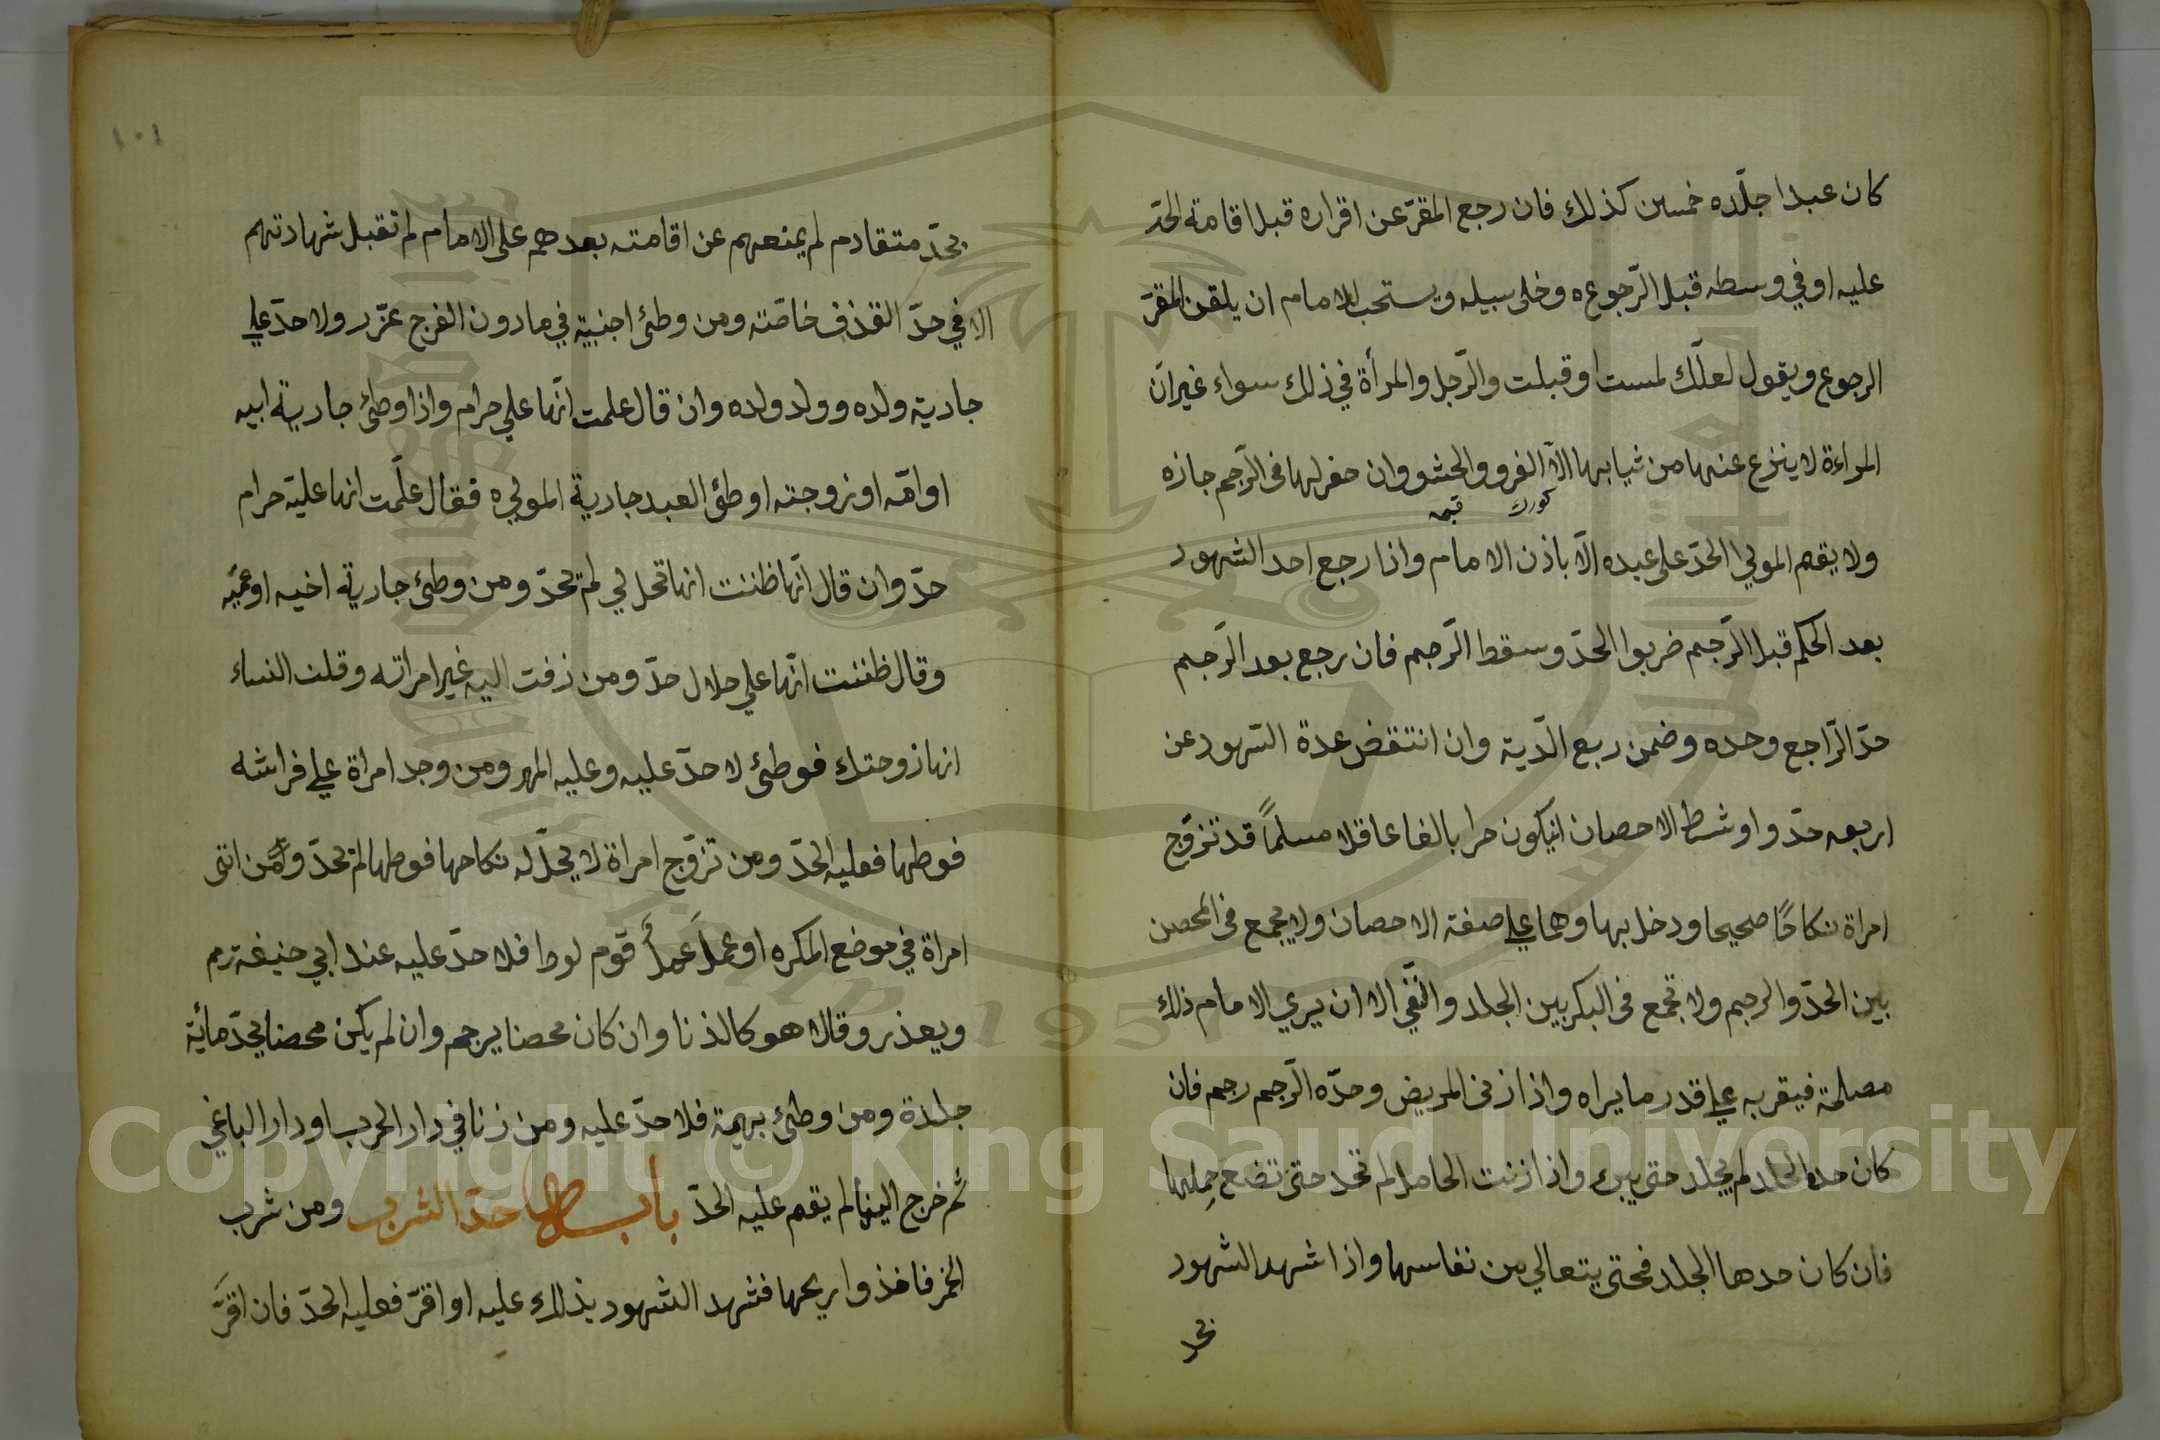 كان عبدا جلّده خمسين كذلك فان رجع المقرّ عن اقراره قبل اقامة الحدّ
عليه او في وسطه قبل الرّجوعه وخلى سبيله ويستحب للامام ان يلقن المقرّ
الرجوع ويقول لعلّك لمست او قبلت والرّجل والمرأة في ذلك سواء غير انّ
المراءة لا ينزع عنها من ثيابها الاّ الفرو والحشو وان حفر لها فى الرّجم جازه
كورك
ولا يقم المولي الحدّ على عبده الّا باذن الامام واذا رجع احد الشهود
بعد الحكم قبل الرّجم ضربوا الحدّ وسقط الرّجم فان رجع بعد الرّجم
حدّ الرّاجع وحده وضمن ربع الدّية وان انتقض عدة الشهود عن
اربعه حدّوا وشرط الاحصان انيكون حرا بالغا عاقلا مسلماً قد تزوّج
امراة نكاحًا صحيحا ودخل بها وهما علي صفة الاحصان ولا يجمع فى المحصن
بين الحدّ والرجم ولا تجمع فى البكر بين الجلد والنّفي الا ان يري الامام ذلك
مصلحة فيقربه علي قدر ما يراه واذا زنى المريض وحدّه الرّجم رجم فان
كان حده الجلد لم يجلد حتى يبرء واذا زنت الحامل لم تحد حتى تضع حملها
فان كان حدها الجلد فحتى يتعالي من نفاسها واذا شهد الشهود
بحد
١٠١
بحدّ متقادم لم يمنعهم عن اقامته بعدهم على الامام لم تقبل شهادتهم
الا في حدّ القذف خاصّته ومن وطئ اجنبية في مادون الفرج عزّر ولا حدّ علي
جارية ولده وولد ولده وان قال علمت انّها علي حرام واذا وطئ جارية ابيه
او امّه او زوجته او وطئ العبد جارية الموليه فقال علّمت انها عليّه حرام
حدّ وان قال انّها ظننت انها تحل لي لم يحدّ ومن وطئ جارية اخيه او عمّيه
وقال ظننت انّها علي حلال حدّ ومن زفت اليه غير امراته وقلن النساء
انها زوجتك فوطئ لا حدّ عليه وعليه المهر ومن وجد امراة علي فراشه
فوطها فعليه الحدّ ومن تزوّج امراة لا يحلّ له نكاحها فوطها لم يحدّ ومن اتى
امراة في موضع المكره او عمل عمل قوم لوط فلا حدّ عليه عند ابي حنيفة رحم
ويعذر وقالا هو كالذنا وان كان محصنا يرجم وان لم يكن محصنا يحدّ مائة
جلدة ومن وطئ بهيمة فلا حدّ عليه ومن زنا في دار الحرب او دار الباغي
ثم خرج الينا لم يقم عليه الحدّ باب حدّ الشرب ومن شرب
الخمر فاخذ وا ريحها فشهد الشهود بذلك عليه او اقرّ فعليه الحدّ فان اقرَّ
Copyright © King Saud University
1957